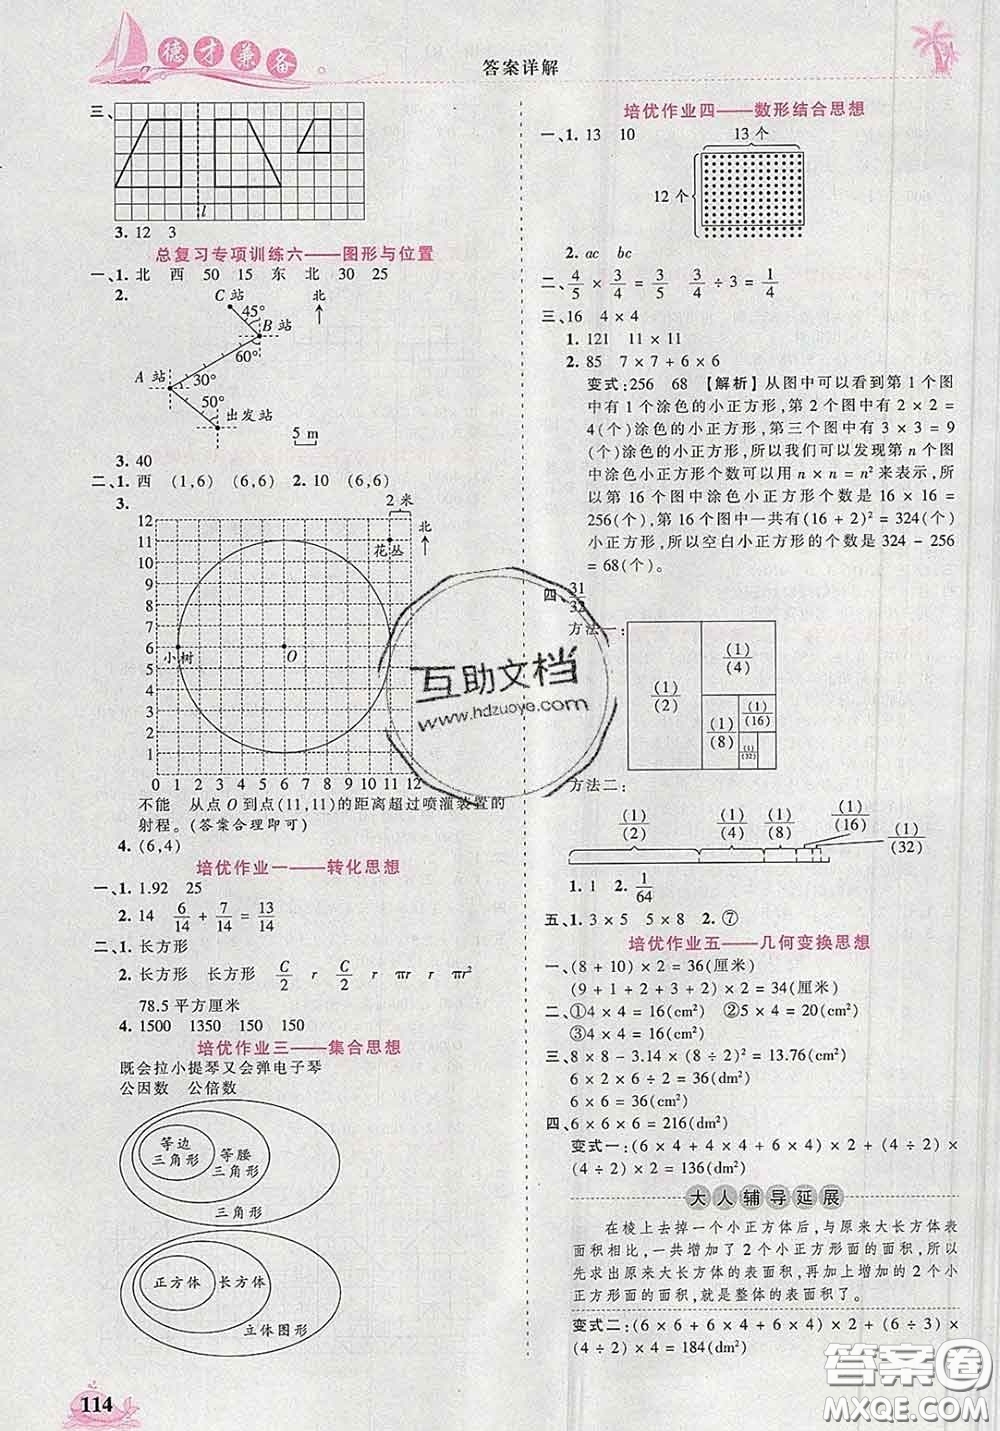 德才兼备
答案详解
三、
l
3. 12 3
总复习专项训练六——图形与位置
一、1. 北 西 50 15 东 北 30 25
2.
C 站
北
45°
B 站
60°
A 站
30°
50°
出发站
5 m
3. 40
二、1. 西 (1,6) (6,6) 2. 10 (6,6)
3.
2 米
北
花丛
小树
O
12
11
10
9
8
7
6
5
4
3
2
1
0 1 2 3 4 5 6 7 8 9 10 11 12
不能 从点 O 到点(11,11)的距离超过喷灌装置的
射程。(答案合理即可)
4. (6,4)
培优作业一——转化思想
一、1. 1.92 25
2. 14 6/14 + 7/14 = 13/14
二、1. 长方形
2. 长方形 长方形 C/2 r C/2 r πr πr²
78.5 平方厘米
4. 1500 1350 150 150
培优作业三——集合思想
既会拉小提琴又会弹电子琴
公因数 公倍数
等边
三角形
等腰
三角形
三角形
正方体
长方体
立体图形
114
培优作业四——数形结合思想
一、1. 13 10
13 个
12 个
2. ac bc
二、4/5 × 3/4 = 3/5 3/4 ÷ 3 = 1/4
三、16 4 × 4
1. 121 11 × 11
2. 85 7 × 7 + 6 × 6
变式:256 68 【解析】从图中可以看到第 1 个图
中有 1 个涂色的小正方形,第 2 个图中有 2 × 2 =
4(个)涂色的小正方形,第三个图中有 3 × 3 = 9
(个)涂色的小正方形,所以我们可以发现第 n 个图
中涂色小正方形个数可以用 n × n = n² 来表示,所
以第 16 个图中涂色小正方形个数是 16 × 16 =
256(个),第 16 个图中一共有(16 + 2)² = 324(个)
小正方形,所以空白小正方形的个数是 324 - 256
= 68(个)。
四、31/32
方法一:
(1)/(2)
(1)/(4)
(1)/(8)
(1)/(16)
(1)/(32)
方法二:
(1)/(2) (1)/(4) (1)/(8) (1)/(16) (1)/(32)
1. 1 2. 1/64
五、1. 3 × 5 5 × 8 2. ⑦
培优作业五——几何变换思想
一、(8 + 10) × 2 = 36(厘米)
(9 + 1 + 2 + 3 + 2) × 2 = 34(厘米)
二、①4 × 4 = 16(cm²) ②5 × 4 = 20(cm²)
③4 × 4 = 16(cm²)
三、8 × 8 - 3.14 × (8 ÷ 2)² = 13.76(cm²)
6 × 6 = 36(dm²)
四、6 × 6 × 6 = 216(dm²)
变式一:(6 × 4 + 4 × 4 + 6 × 4) × 2 + (4 ÷ 2) ×
(4 ÷ 2) × 2 = 136(dm²)
大人辅导延展
在棱上去掉一个小正方体后,与原来大长方体表
面积相比,一共增加了 2 个小正方形面的面积,所以
先求出原来大长方体的表面积,再加上增加的 2 个小
正方形面的面积,就是整体的表面积了。
变式二:(6 × 6 + 6 × 4 + 6 × 4) × 2 + (6 ÷ 3) ×
(4 ÷ 2) × 4 = 184(dm²)
互助文档
www.hdzuoye.com
答案卷
MXQE.COM